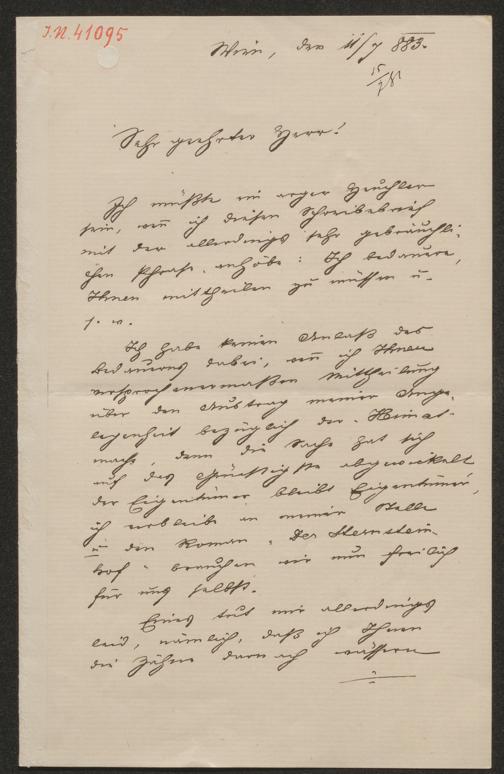 J.N. 41095
Wien, den 11/7 883.
15/7 81
Sehr geehrter Herr!
Ich müßte ein arger Heuchler
sein, weñ ich diesen Schreibebrief
mit der allerdings sehr gebräuchli-
chen Phrase anhöbe: Ich bedauere,
Ihnen mittheilen zu müssen u.
s. w.
Ich habe keinen Anlaß des
Bedauerns dabei, weñ ich Ihnen
versprochenermaßen Mittheilung
über den Austrag meiner Ange-
legenheit bezüglich der „Heimat“
mache, denn die Sache hat sich
auf das Günstigste abgewickelt
der Eigentümer bleibt Eigentümer,
ich verbleibe in meiner Stelle
u den Roman „Der Sternstein-
hof“ brauchen wir nun freilich
für uns selbst.
Eines tut mir allerdings
leid, nämlich, daß ich Ihnen
die Zähne darnach wässern